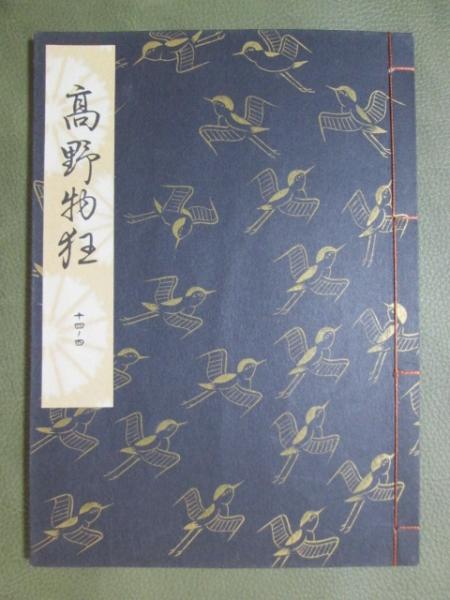 高野物狂
十四ノ四